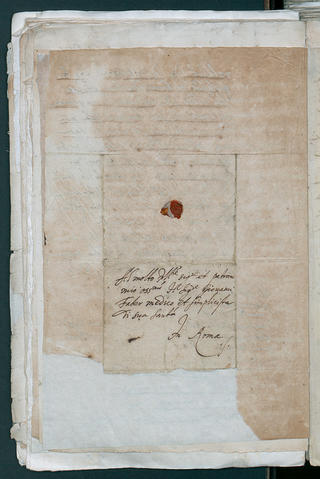 Al molto Ill.re sig.re et patron
mio oss.mo Il sig.r Giovani
Faber medico et simplicista
di sua Santà
In Roma